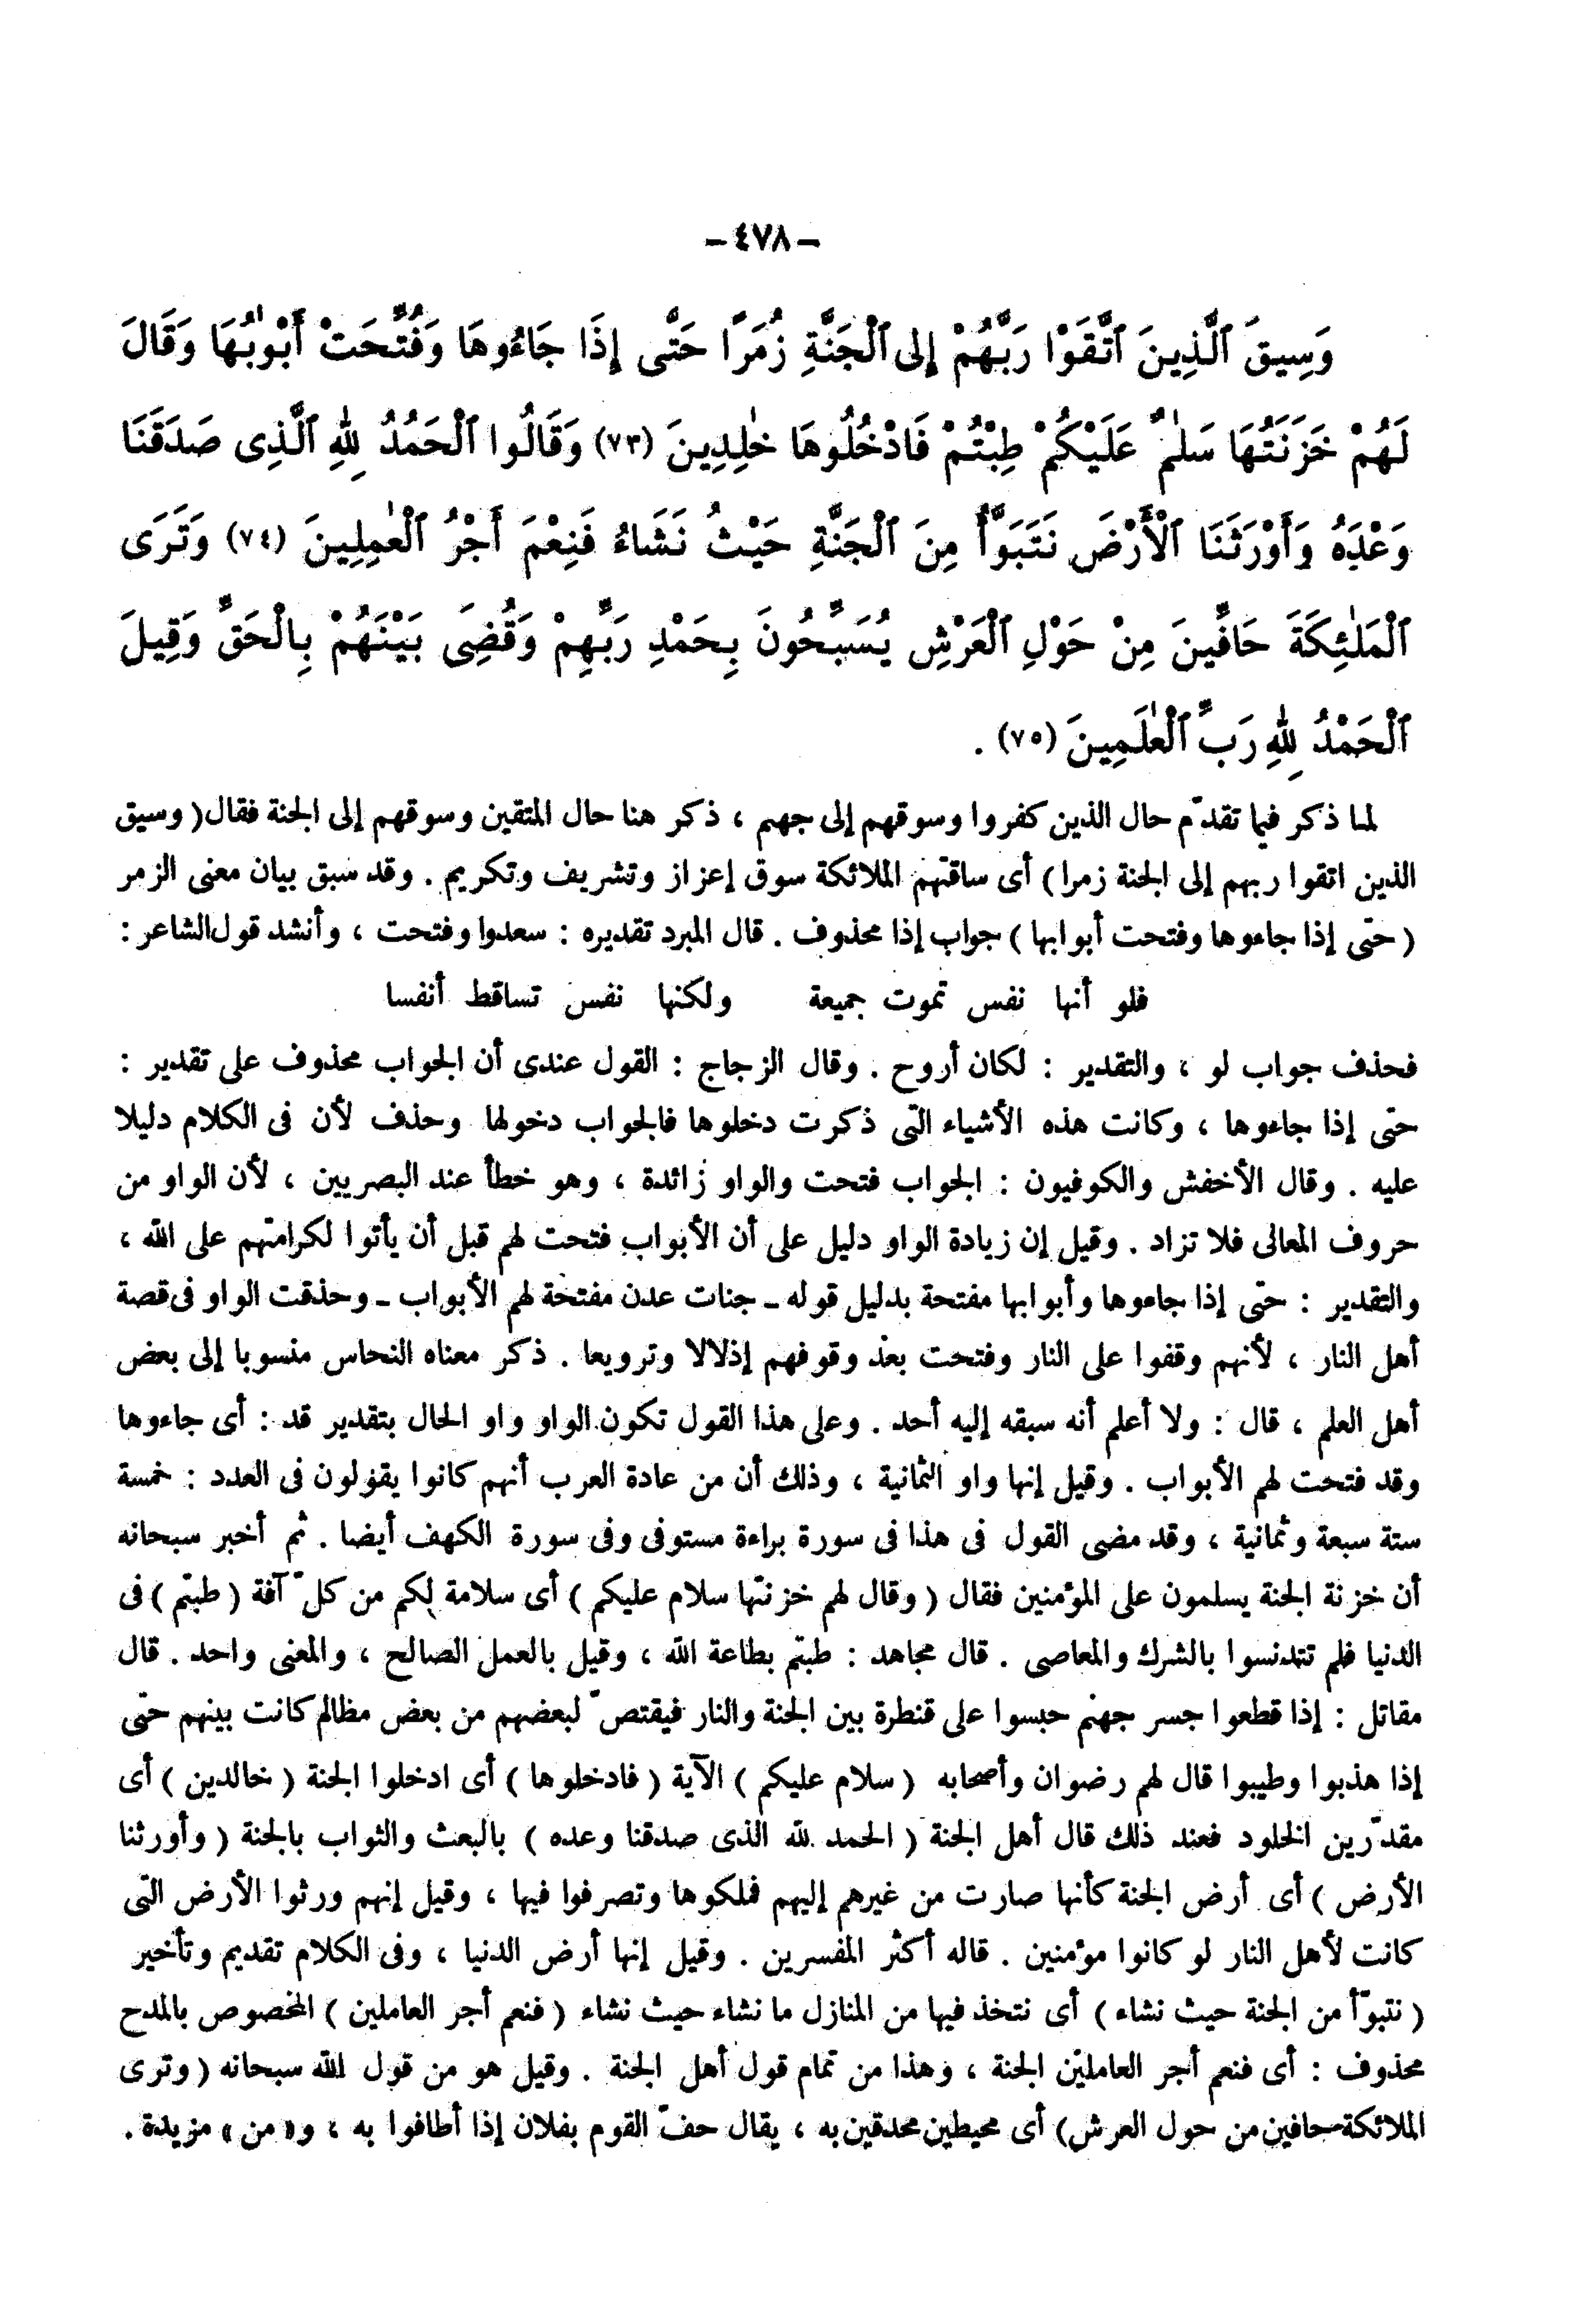 – ٤٧٨ –
وَسِيقَ ٱلَّذِينَ ٱتَّقَوْا رَبَّهُمْ إِلى ٱلْجَنَّةِ زُمَرًا حَتَّى إِذَا جَاءُوهَا وَفُتِّحَتْ أَبْوٰبُهَا وَقَالَ
لَهُمْ خَزَنَتُهَا سَلٰمٌ عَلَيْكُمْ طِبْتُمْ فَادْخُلُوهَا خٰلِدِينَ (٧٣) وَقَالُوا ٱلْحَمْدُ لِلّٰهِ ٱلَّذِى صَدَقَنَا
وَعْدَهُ وَأَوْرَثَنَا ٱلْأَرْضَ نَتَبَوَّأُ مِنَ ٱلْجَنَّةِ حَيْثُ نَشَاءُ فَنِعْمَ أَجْرُ ٱلْعٰمِلِينَ (٧٤) وَتَرَى
ٱلْمَلٰئِكَةَ حَافِّينَ مِنْ حَوْلِ ٱلْعَرْشِ يُسَبِّحُونَ بِحَمْدِ رَبِّهِمْ وَقُضِىَ بَيْنَهُمْ بِالْحَقِّ وَقِيلَ
ٱلْحَمْدُ لِلّٰهِ رَبِّ ٱلْعٰلَمِينَ (٧٥) .
لما ذكر فيما تقدّم حال الذين كفروا وسوقهم إلى جهنم ، ذكر هنا حال المتقين وسوقهم إلى الجنة فقال ( وسيق
الذين اتقوا ربهم إلى الجنة زمرا ) أى ساقتهم الملائكة سوق إعزاز وتشريف وتكريم . وقد سبق بيان معنى الزمر
( حتى إذا جاءوها وفتحت أبوابها ) جواب إذا محذوف . قال المبرد تقديره : سعدوا وفتحت ، وأنشد قول الشاعر :
فلو أنها نفس تموت جميعة ولكنها نفس تساقط أنفسا
فحذف جواب لو ، والتقدير : لكان أروح . وقال الزجاج : القول عندى أن الجواب محذوف على تقدير :
حتى إذا جاءوها ، وكانت هذه الأشياء التى ذكرت دخلوها فالجواب دخولها وحذف لأن فى الكلام دليلا
عليه . وقال الأخفش والكوفيون : الجواب فتحت والواو زائدة ، وهو خطأ عند البصريين ، لأن الواو من
حروف المعالى فلا تزاد . وقيل إن زيادة الواو دليل على أن الأبواب فتحت لهم قبل أن يأتوا لكرامتهم على الله ،
والتقدير : حتى إذا جاءوها وأبوابها مفتحة بدليل قوله ـ جنات عدن مفتحة لهم الأبواب ـ وحذفت الواو فى قصة
أهل النار ، لأنهم وقفوا على النار وفتحت بعد وقوفهم إذلالا وترويعا . ذكر معناه النحاس منسوبا إلى بعض
أهل العلم ، قال : ولا أعلم أنه سبقه إليه أحد . وعلى هذا القول تكون الواو واو الحال بتقدير قد : أى جاءوها
وقد فتحت لهم الأبواب . وقيل إنها واو الثمانية ، وذلك أن من عادة العرب أنهم كانوا يقولون فى العدد : خمسة
ستة سبعة وثمانية ، وقد مضى القول فى هذا فى سورة براءة مستوفى وفى سورة الكهف أيضا . ثم أخبر سبحانه
أن خزنة الجنة يسلمون على المؤمنين فقال ( وقال لهم خزنتها سلام عليكم ) أى سلامة لكم من كلّ آفة ( طبتم ) فى
الدنيا فلم تتدنسوا بالشرك والمعاصى . قال مجاهد : طبتم بطاعة الله ، وقيل بالعمل الصالح ، والمعنى واحد . قال
مقاتل : إذا قطعوا جسر جهنم حبسوا على قنطرة بين الجنة والنار فيقتصّ لبعضهم من بعض مظالم كانت بينهم حتى
إذا هذبوا وطيبوا قال لهم رضوان وأصحابه ( سلام عليكم ) الآية ( فادخلوها ) أى ادخلوا الجنة ( خالدين ) أى
مقدّرين الخلود فعند ذلك قال أهل الجنة ( الحمد لله الذى صدقنا وعده ) بالبعث والثواب بالجنة ( وأورثنا
الأرض ) أى أرض الجنة كأنها صارت من غيرهم إليهم فملكوها وتصرفوا فيها ، وقيل إنهم ورثوا الأرض التى
كانت لأهل النار لو كانوا مؤمنين . قاله أكثر المفسرين . وقيل إنها أرض الدنيا ، وفى الكلام تقديم وتأخير
( نتبوّأ من الجنة حيث نشاء ) أى نتخذ فيها من المنازل ما نشاء حيث نشاء ( فنعم أجر العاملين ) المخصوص بالمدح
محذوف : أى فنعم أجر العاملين الجنة ، وهذا من تمام قول أهل الجنة . وقيل هو من قول الله سبحانه ( وترى
الملائكة حافين من حول العرش ) أى محيطين محدقين به ، يقال حفّ القوم بفلان إذا أطافوا به ، و« من » مزيدة .